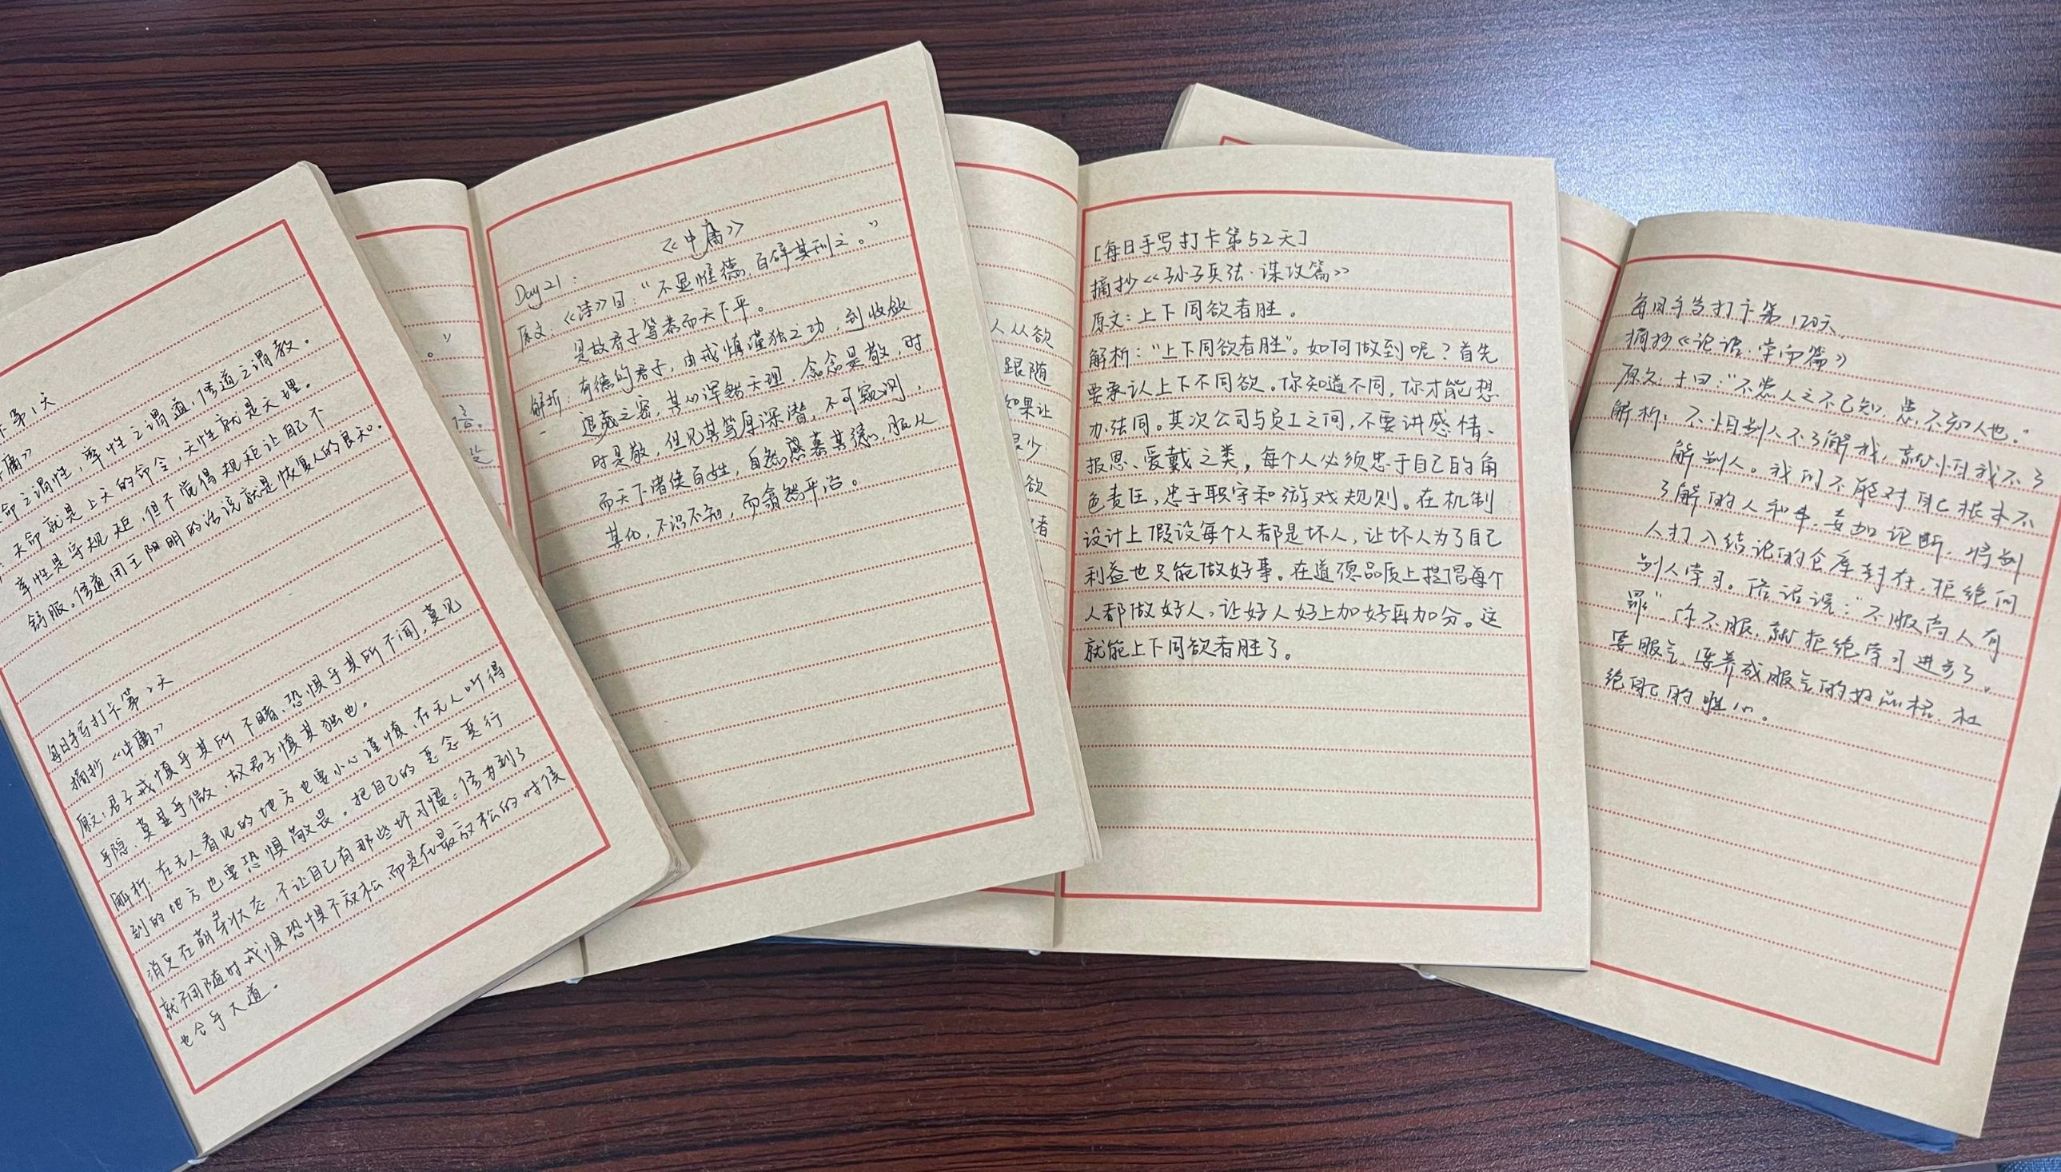 卡第1天
庸》
命之谓性，率性之谓道，修道之谓教。
天命就是上天的命令，天性就是天理。
率性是守规矩，但不觉得规矩让自己不
舒服。修道用王阳明的话说就是恢复人的良知。
每日手写打卡第2天
摘抄《中庸》
原文：君子戒慎乎其所不睹，恐惧乎其所不闻，莫见
乎隐，莫显乎微，故君子慎其独也。
解析：在无人看见的地方也要小心谨慎，在无人听得
到的地方也要恐惧敬畏。把自己的恶念恶行
消灭在萌芽状态，不让自己有那些坏习惯。修为到了
就不用随时戒惧恐惧不放松，而是在最放松的时候
也合乎大道。
。”
《中庸》
Day21：
原文：《诗》曰：“不显惟德，百辟其刑之。”
是故君子笃恭而天下平。
解析：有德的君子，由戒慎谨独之功，到收敛
退藏之密，其心浑然天理，念念是敬，时
时是敬，但见其笃厚深潜，不可窥测，
而天下诸侯百姓，自然感慕其德，服从
其化，不识不知，而翕然平治。
人从欲
跟随
如果让
很少
欲
者
[每日手写打卡第52天]
摘抄《孙子兵法·谋攻篇》
原文：上下同欲者胜。
解析：“上下同欲者胜”。如何做到呢？首先
要承认上下不同欲。你知道不同，你才能想
办法同。其次公司与员工之间，不要讲感情、
报恩、爱戴之类，每个人必须忠于自己的角
色责任，忠于职守和游戏规则。在机制
设计上假设每个人都是坏人，让坏人为了自己
利益也只能做好事。在道德品质上提倡每个
人都做好人，让好人好上加好再加分。这
就能上下同欲者胜了。
每日手写打卡第120天
摘抄《论语·学而篇》
原文：子曰：“不患人之不己知，患不知人也。”
解析：不怕别人不了解我，就怕我不了
解别人。我们不能对自己根本不
了解的人和事，妄加论断，将别
人打入结论的仓库封存，拒绝向
别人学习。俗话说：“不服高人有
罪”你不服，就拒绝学习进步了。
要服气，培养成服气的好品格，杜
绝自己的胜心。